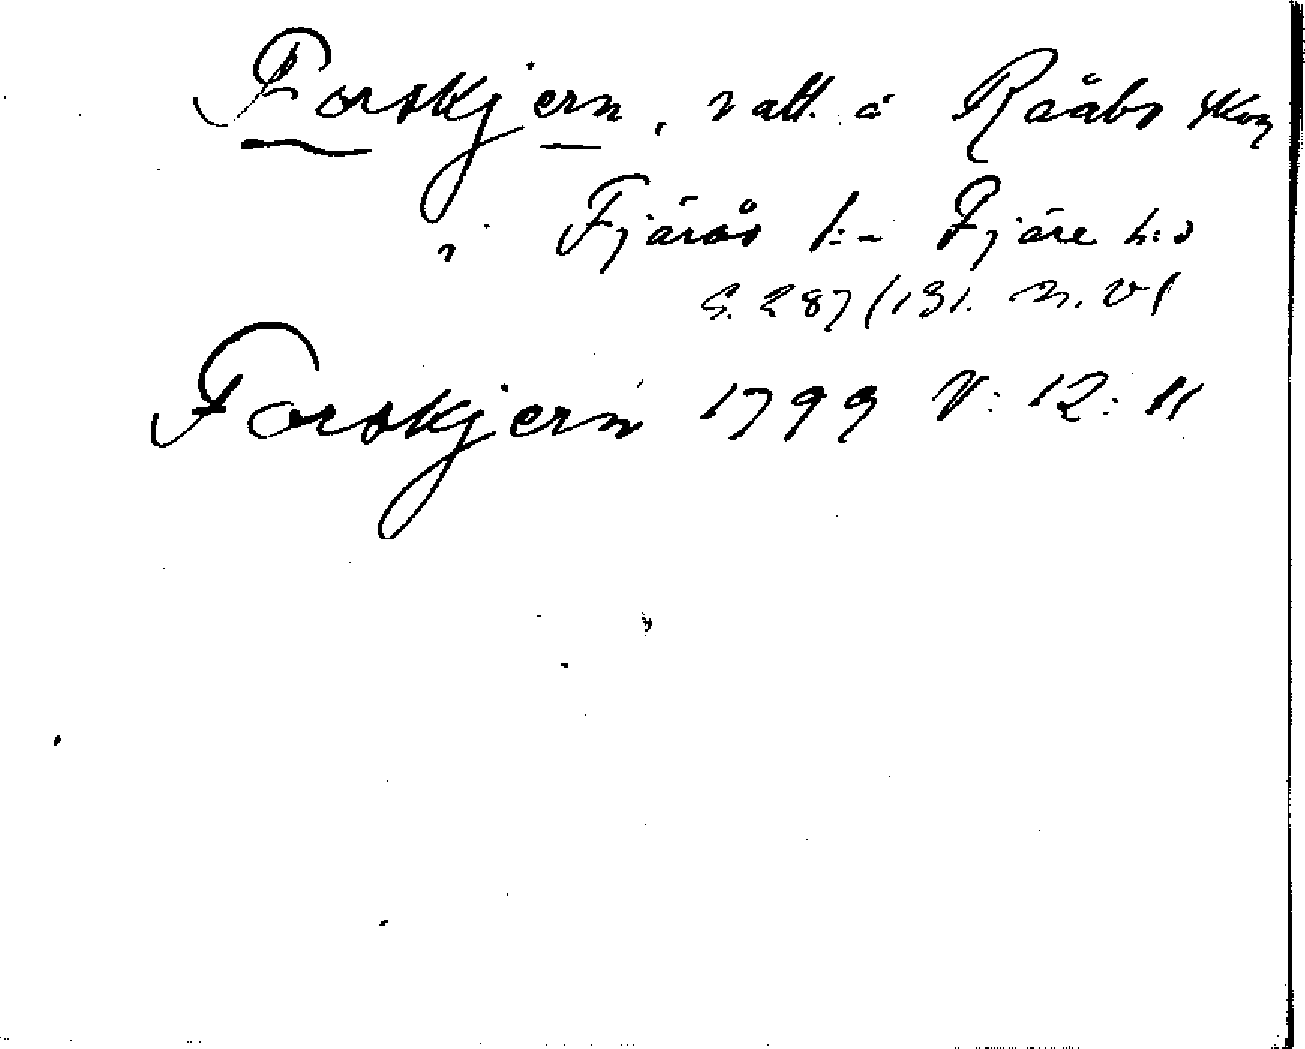 Forskjern, vatt. å Rååbs skog
i Fjärås s:n Fjäre h:d
S. 287/131. n. Vl
Forskjern 1799 V: 12: 11